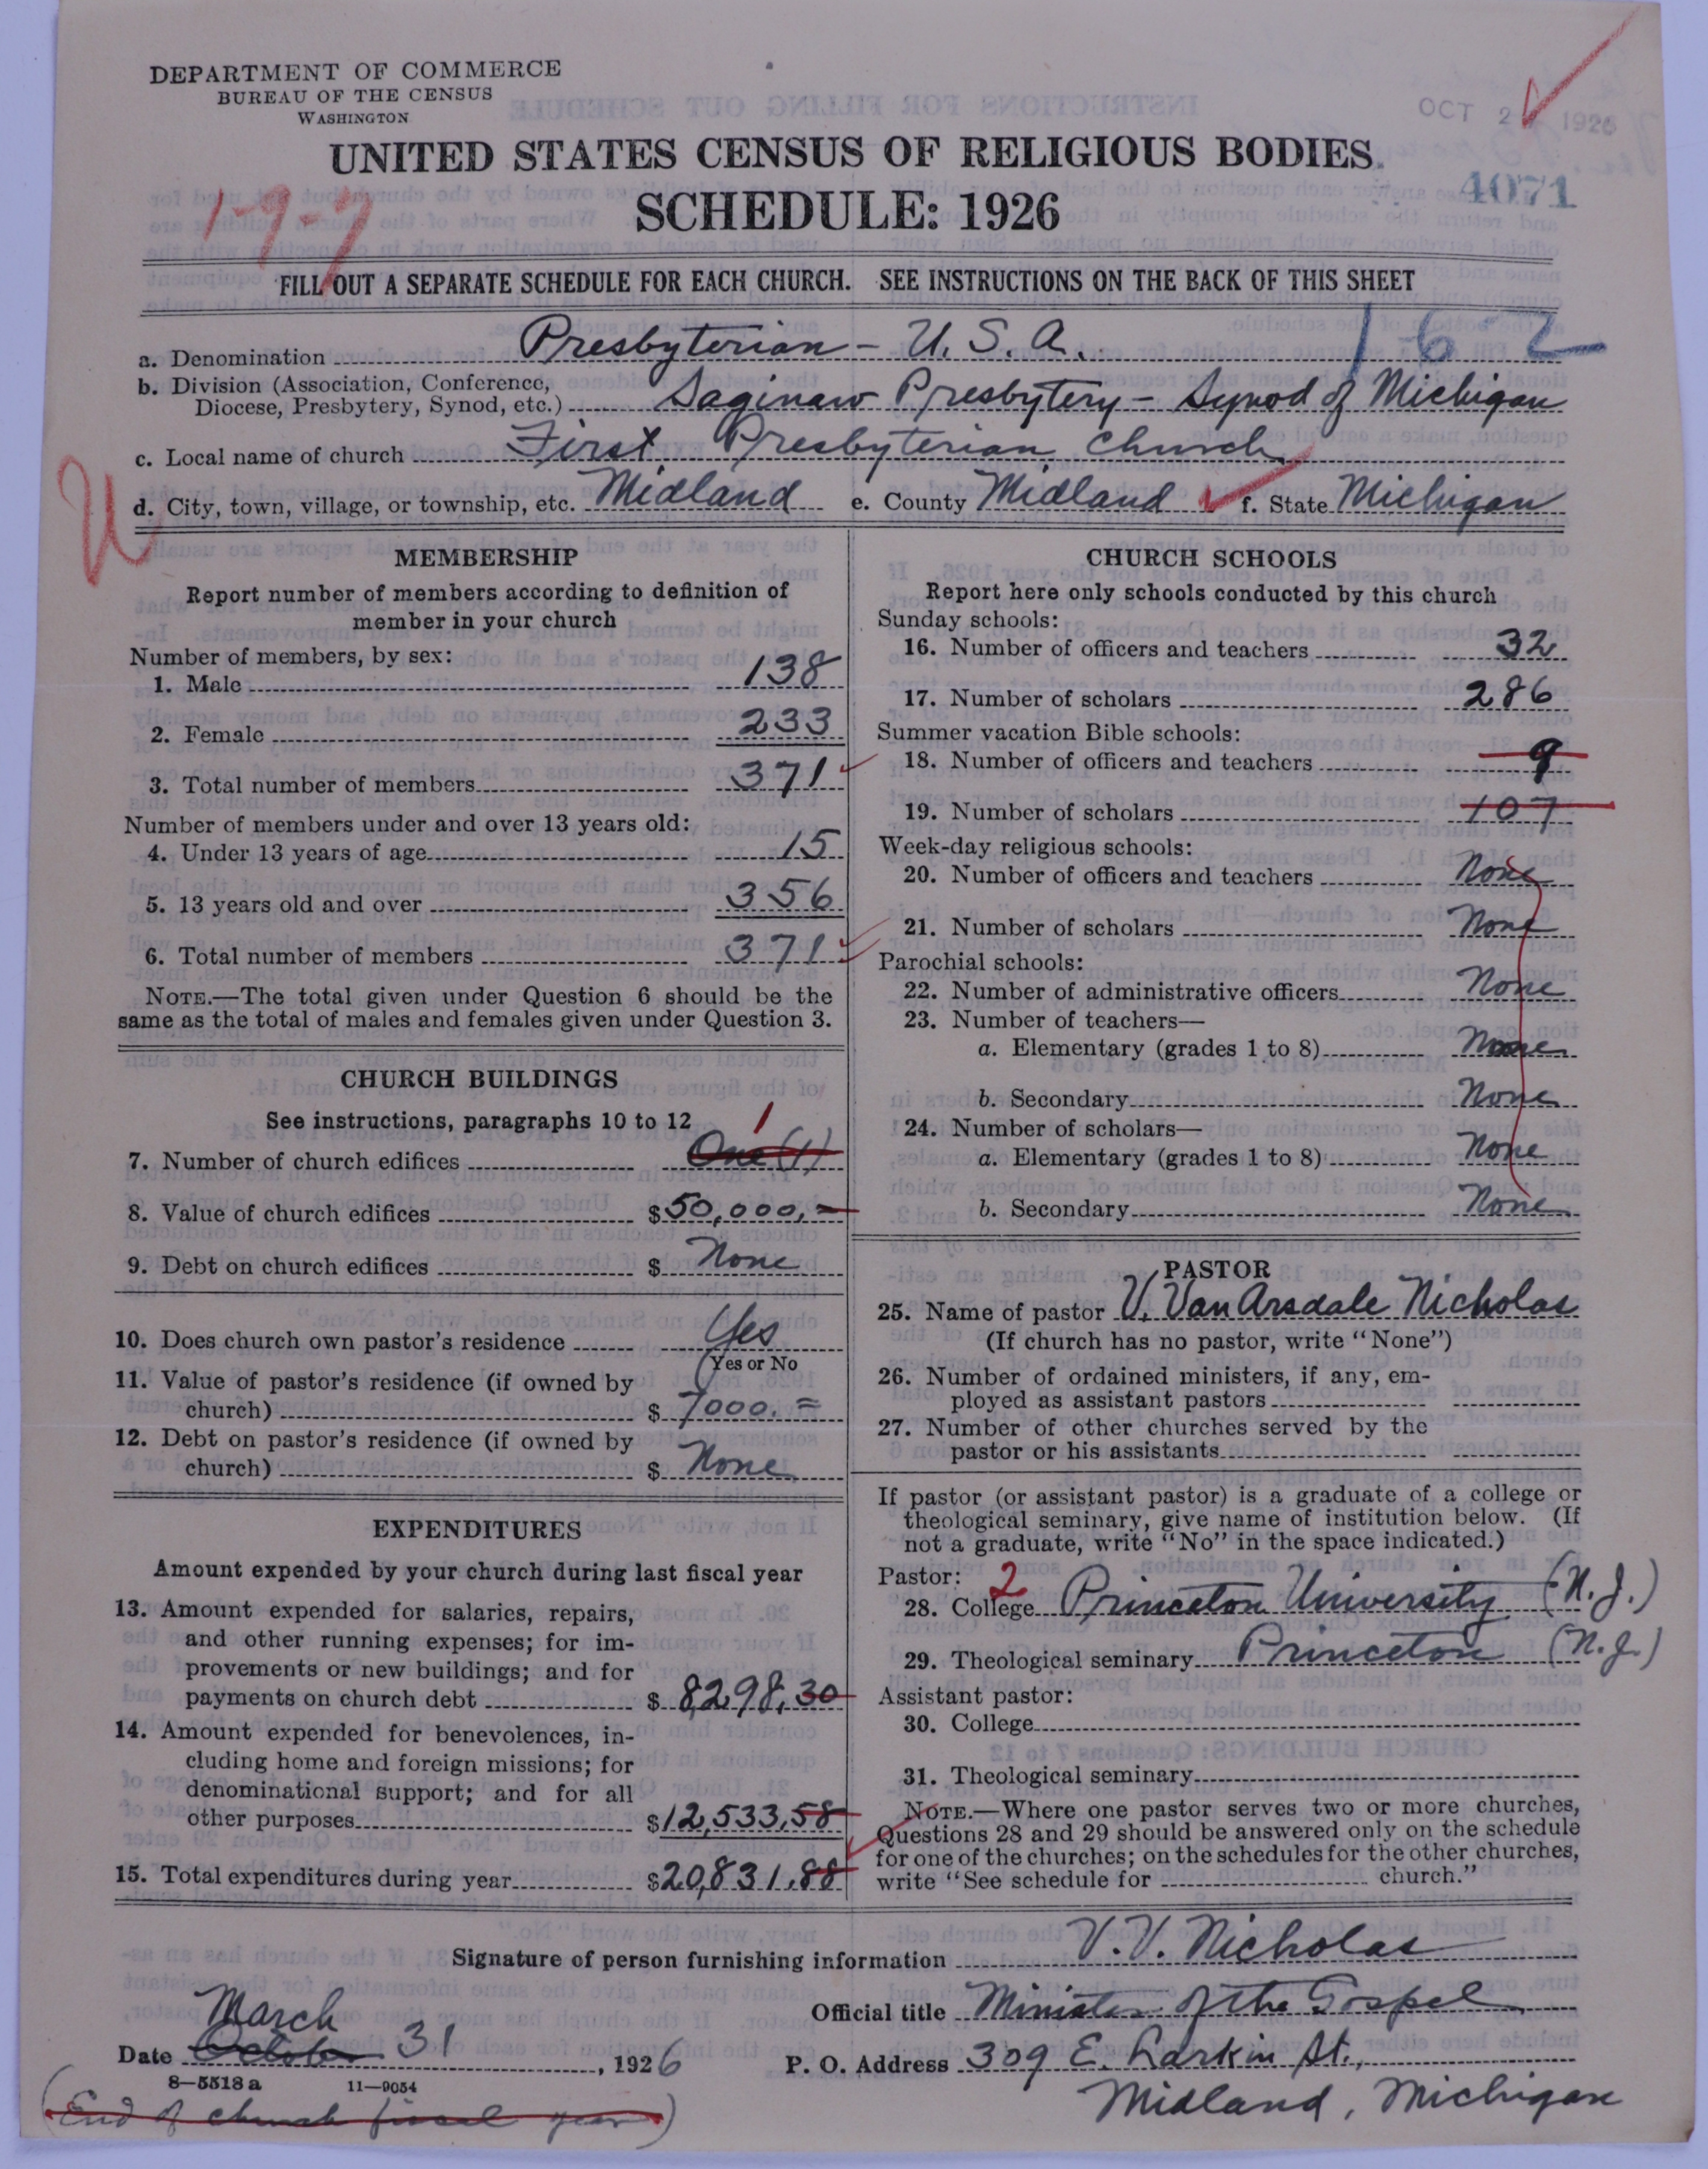 DEPARTMENT OF COMMERCE
BUREAU OF THE CENSUS
WASHINGTON
OCT 2 1926
UNITED STATES CENSUS OF RELIGIOUS BODIES
4071
1-9-7
SCHEDULE: 1926
FILL OUT A SEPARATE SCHEDULE FOR EACH CHURCH. SEE INSTRUCTIONS ON THE BACK OF THIS SHEET
a. Denomination Presbyterian - U. S. A. 162
b. Division (Association, Conference,
Diocese, Presbytery, Synod, etc.) Saginaw Presbytery - Synod of Michigan
c. Local name of church First Presbyterian Church
U
d. City, town, village, or township, etc. Midland e. County Midland f. State Michigan
MEMBERSHIP
Report number of members according to definition of
member in your church
Number of members, by sex:
1. Male 138
2. Female 233
3. Total number of members 371
Number of members under and over 13 years old:
4. Under 13 years of age 15
5. 13 years old and over 356
6. Total number of members 371
NOTE.—The total given under Question 6 should be the
same as the total of males and females given under Question 3.
CHURCH BUILDINGS
See instructions, paragraphs 10 to 12
1
7. Number of church edifices One (1)
8. Value of church edifices $50,000.-
9. Debt on church edifices $ None
10. Does church own pastor's residence Yes
(Yes or No
11. Value of pastor's residence (if owned by
church) $ 7000. =
12. Debt on pastor's residence (if owned by
church) $ None
EXPENDITURES
Amount expended by your church during last fiscal year
13. Amount expended for salaries, repairs,
and other running expenses; for im-
provements or new buildings; and for
payments on church debt $ 8,298.30
14. Amount expended for benevolences, in-
cluding home and foreign missions; for
denominational support; and for all
other purposes $12,533.58
15. Total expenditures during year $20,831.88
CHURCH SCHOOLS
Report here only schools conducted by this church
Sunday schools:
16. Number of officers and teachers 32
17. Number of scholars 286
Summer vacation Bible schools:
18. Number of officers and teachers 9
19. Number of scholars 107
Week-day religious schools:
20. Number of officers and teachers None
21. Number of scholars None
Parochial schools:
22. Number of administrative officers None
23. Number of teachers—
a. Elementary (grades 1 to 8) None
b. Secondary None
24. Number of scholars—
a. Elementary (grades 1 to 8) None
b. Secondary None
PASTOR
25. Name of pastor V. Van Arsdale Nicholas
(If church has no pastor, write "None")
26. Number of ordained ministers, if any, em-
ployed as assistant pastors
27. Number of other churches served by the
pastor or his assistants
If pastor (or assistant pastor) is a graduate of a college or
theological seminary, give name of institution below. (If
not a graduate, write "No" in the space indicated.)
Pastor: 2
28. College Princeton University (N. J.)
29. Theological seminary Princeton (N. J.)
Assistant pastor:
30. College
31. Theological seminary
NOTE.—Where one pastor serves two or more churches,
Questions 28 and 29 should be answered only on the schedule
for one of the churches; on the schedules for the other churches,
write "See schedule for church."
Signature of person furnishing information V. V. Nicholas
Official title Minister of the Gospel
March
Date October 31, 1926 P. O. Address 309 E. Larkin St.,
8—5518 a 11—9054
Midland, Michigan
(End of church fiscal year)